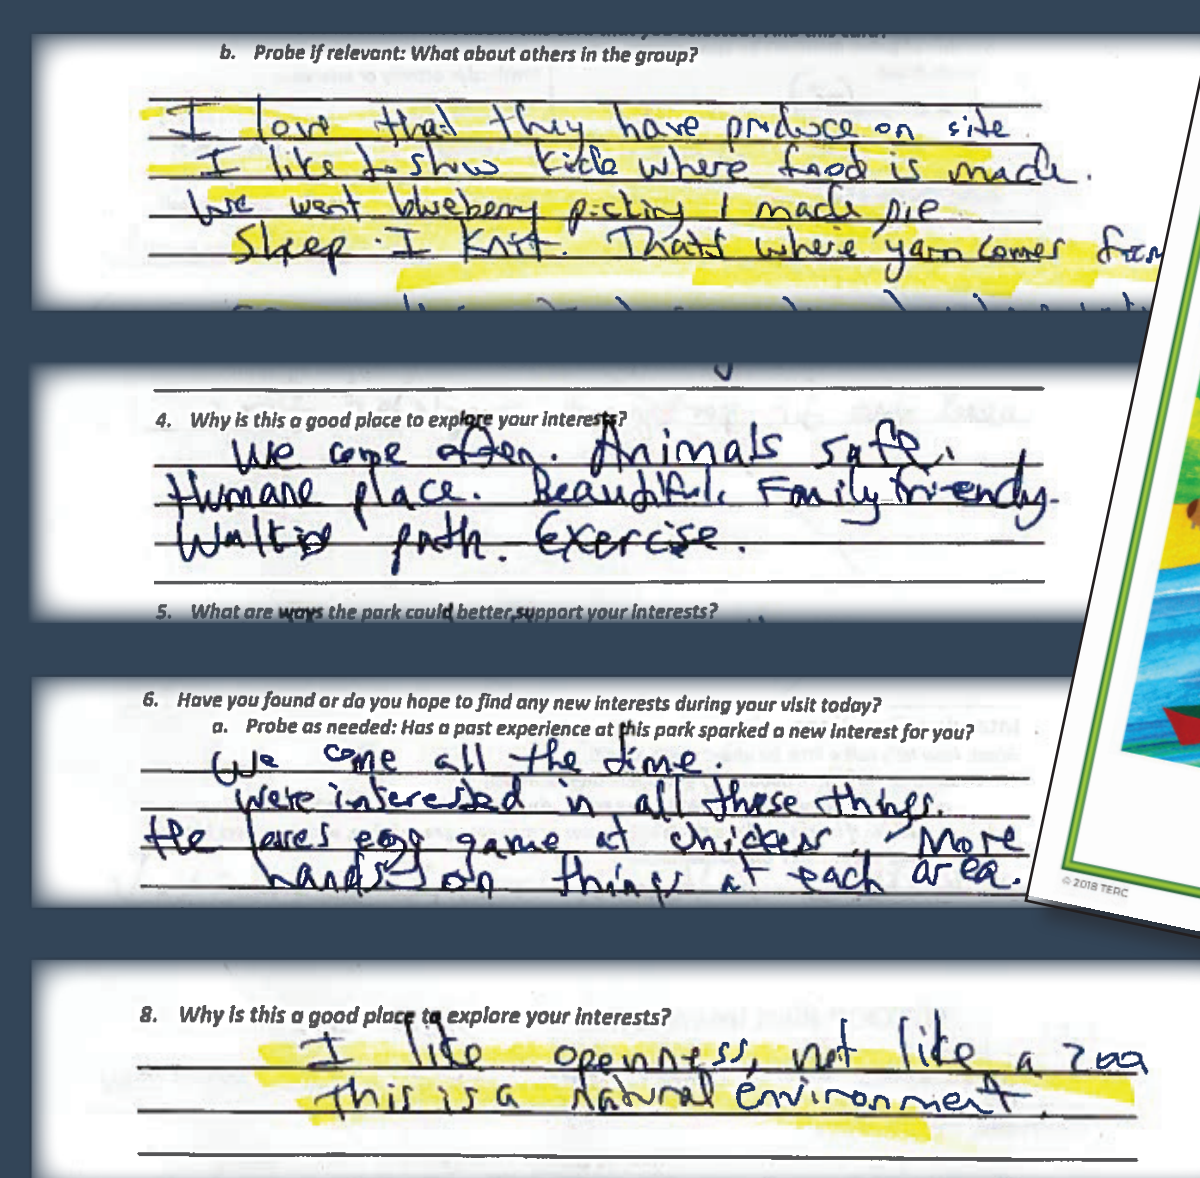 b. Probe if relevant: What about others in the group?
I love that they have produce on site.
I like to show kids where food is made.
We went blueberry picking I made pie
Sheep. I knit. That's where yarn comes from
4. Why is this a good place to explore your interests?
We come often. Animals safe.
Humane place. Beautiful. Family friendly.
Walking path. Exercise.
5. What are ways the park could better support your interests?
6. Have you found or do you hope to find any new interests during your visit today?
a. Probe as needed: Has a past experience at this park sparked a new interest for you?
We come all the time.
We're interested in all these things.
He loves egg game at chicken. More
hands on things at each area.
© 2018 TERC
8. Why is this a good place to explore your interests?
I like openness, not like a zoo
this is a natural environment.